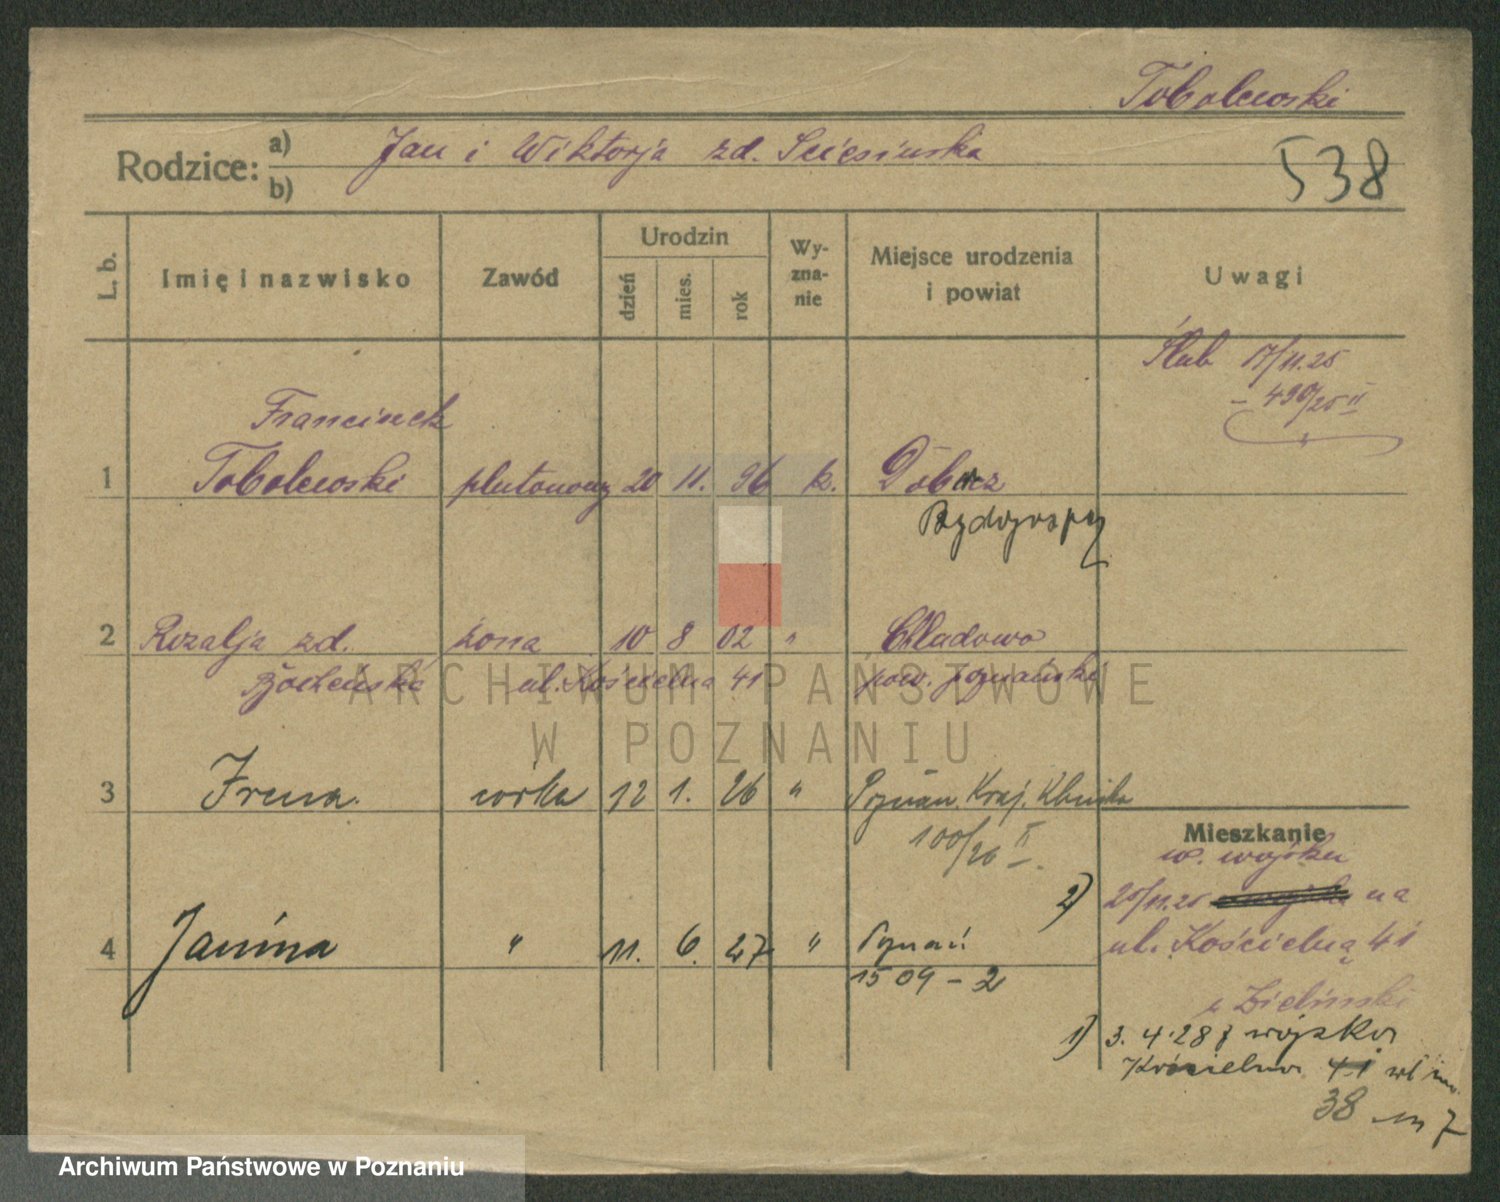 Tobolewski
Rodzice: a) Jan i Wiktorja zd. Ściesińska
b)
538
L. b.
Imię i nazwisko
Zawód
Urodzin
dzień
mies.
rok
Wy-
zna-
nie
Miejsce urodzenia
i powiat
Uwagi
Ślub 17/11.25
- 490/25 II
Franciszek
1 Tobolewski plutonowy 20 11. 96 k. Dóbrcz
Bydgoszcz
2 Rozalja zd. żona 10 8 02 " Chludowo
ul. Kościelna 41 pow. poznański
ARCHIWUM PAŃSTWOWE
W POZNANIU
3 Irena córka 12 1. 26 " Poznań. Kraj. Klinika
100/26 II
4 Janina " 11. 6. 27 " Poznań
1509 - 2
Mieszkanie
w. wojsku
2) 25/11.25 na
ul. Kościelną 41
u Zieliński
1) 3. 4. 28 z wojska
Kościelna 41
38 m 7
Archiwum Państwowe w Poznaniu